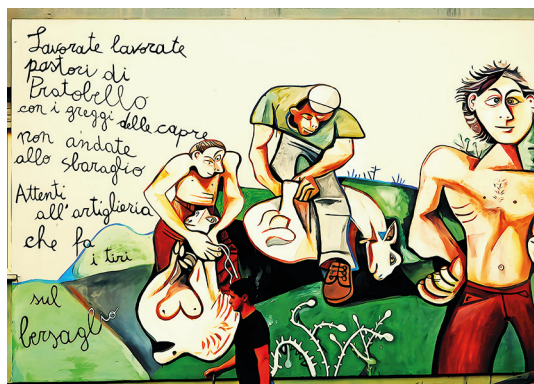 Lavorate lavorate
pastori di
Pratobello
con i greggi delle capre
non andate
allo sbaraglio
Attenti
all'artiglieria
che fa
i tiri
sul
bersaglio